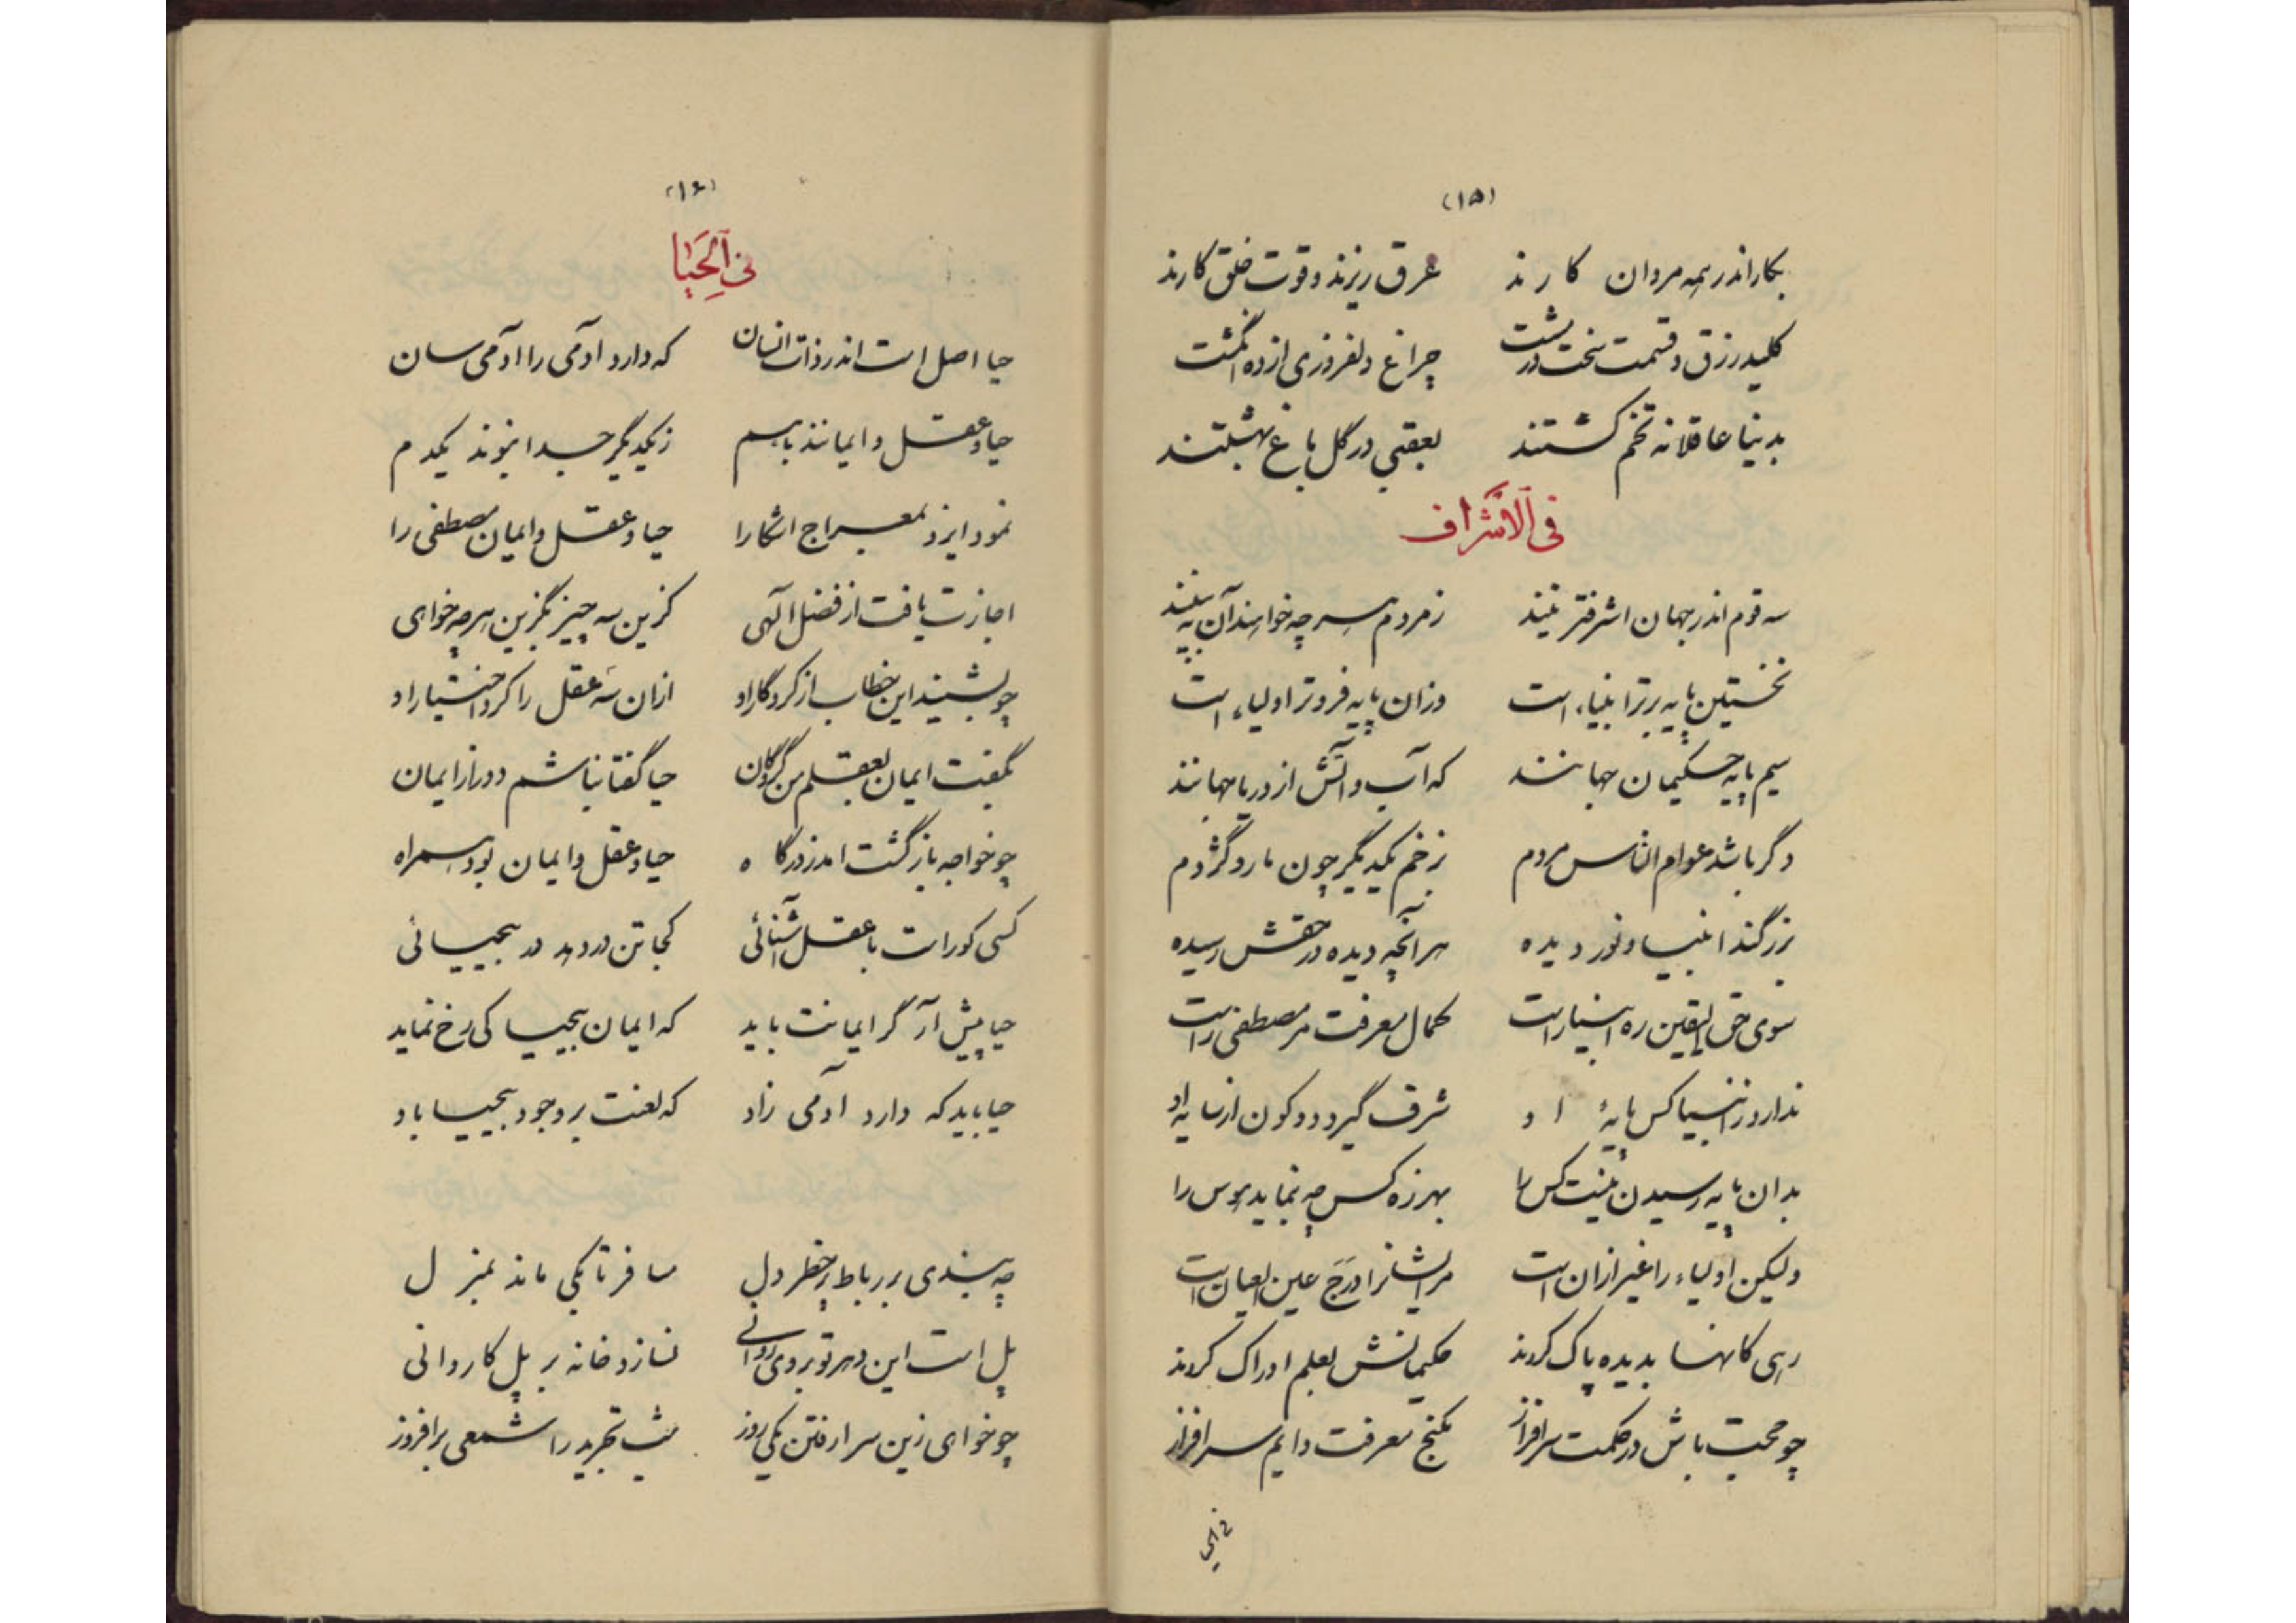 (۱۵)
بکار اندر همه مردان کارند عرق ریزند و قوت خلق کارند
کلید رزق و قسمت سخت در مشت چراغ دلفروزی از ده انگشت
بدنیا عاقلانه تخم کشتند بعقبی در گل باغ بهشتند
فی الأشراف
سه قوم اندر جهان اشرفترینند ز مردم هر چه خواهند آن به بینند
نخستین پایه برتر انبیاء است وزان پایه فروتر اولیاء است
سیم پایه حکیمان جهانند که آب و آتش از دریا جهانند
دگر باشد عوام الناس مردم بزخم یکدیگر چون مار و گژدم
بزرگند انبیا و نور دیده هر آنچه دیده در حقش رسیده
سوی حق الیقین ره انبیا راست کمال معرفت مر مصطفی راست
ندارد ز انبیا کس پایهٔ او شرف گیرد دو کون از سایه او
بدان پایه رسیدن نیست کس را بهرزه کس چه بنماید هوس را
ولیکن اولیاء را غیر ازان است مر ایشانرا درج عین العیان است
رهی کانها بدیده پاک کردند حکیمانش بعلم ادراک کردند
چو محبت باش در حکمت سرافراز بگنج معرفت دایم سرافراز
فی الحیا
(۱۶)
فی الحیا
حیا اصل است اندر ذات انسان که دارد آدمی را آدمی سان
حیا و عقل و ایمانند باهم ز یکدیگر جدا نبوند یکدم
نمود ایزد بمعراج آشکارا حیا و عقل و ایمان مصطفی را
اجازت یافت از فضل الهی کزین سه چیز بگزین هر چه خواهی
چو بشنید این خطاب از کردگار او ازان سه عقل را کرد اختیار او
بگفت ایمان بعقلم من گروگان حیا گفتا نباشم دور از ایمان
چو خواجه بازگشت آمد ز درگاه حیا و عقل و ایمان بود همراه
کسی کو راست با عقل آشنائی کجا تن در دهد در بیحیائی
حیا پیش آر گر ایمانت باید که ایمان بیحیا کی رخ نماید
حیا باید که دارد آدمی زاد که لعنت بر وجود بیحیا باد
چه بندی بر رباط پر خطر دل مسافر تا بکی ماند بمنزل
پل است این دهر تو بر وی روانی نسازد خانه بر پل کاروانی
چو خواهی زین سرا رفتن یکی روز شب تجرید را شمعی برافروز